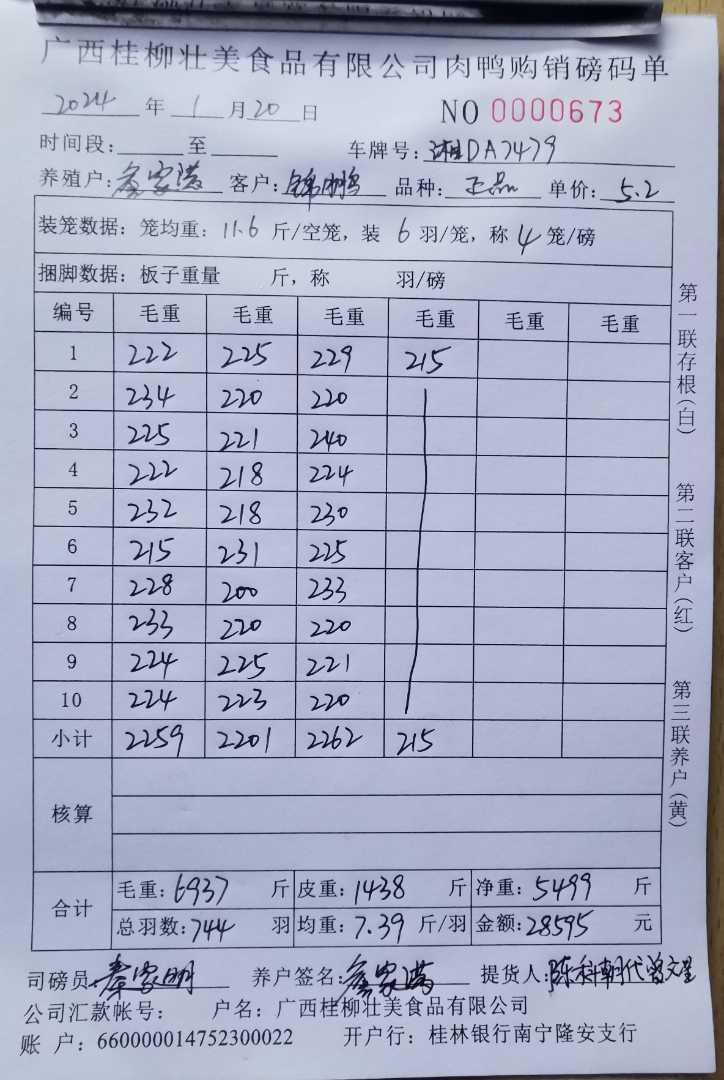 广西桂柳壮美食品有限公司肉鸭购销磅码单
2024 年 1 月 20 日 NO 0000673
时间段: 至 车牌号: 湘DA7479
养殖户: 秦家满 客户: 锦鹏 品种: 正品 单价: 5.2
装笼数据: 笼均重: 11.6 斤/空笼, 装 6 羽/笼, 称 4 笼/磅
捆脚数据: 板子重量 斤, 称 羽/磅
编号 毛重 毛重 毛重 毛重 毛重 毛重
1 222 225 229 215
2 234 220 220
3 225 221 240
4 222 218 224
5 232 218 230
6 215 231 225
7 228 200 233
8 233 220 220
9 224 225 221
10 224 223 220
小计 2259 2201 2262 215
核算
合计 毛重: 6937 斤 皮重: 1438 斤 净重: 5499 斤
总羽数: 744 羽 均重: 7.39 斤/羽 金额: 28595 元
司磅员: 秦家明 养户签名: 秦家满 提货人: 陈科朝代曾文星
公司汇款帐号: 户名: 广西桂柳壮美食品有限公司
账 户: 660000014752300022 开户行: 桂林银行南宁隆安支行
第一联存根(白)
第二联客户(红)
第三联养户(黄)